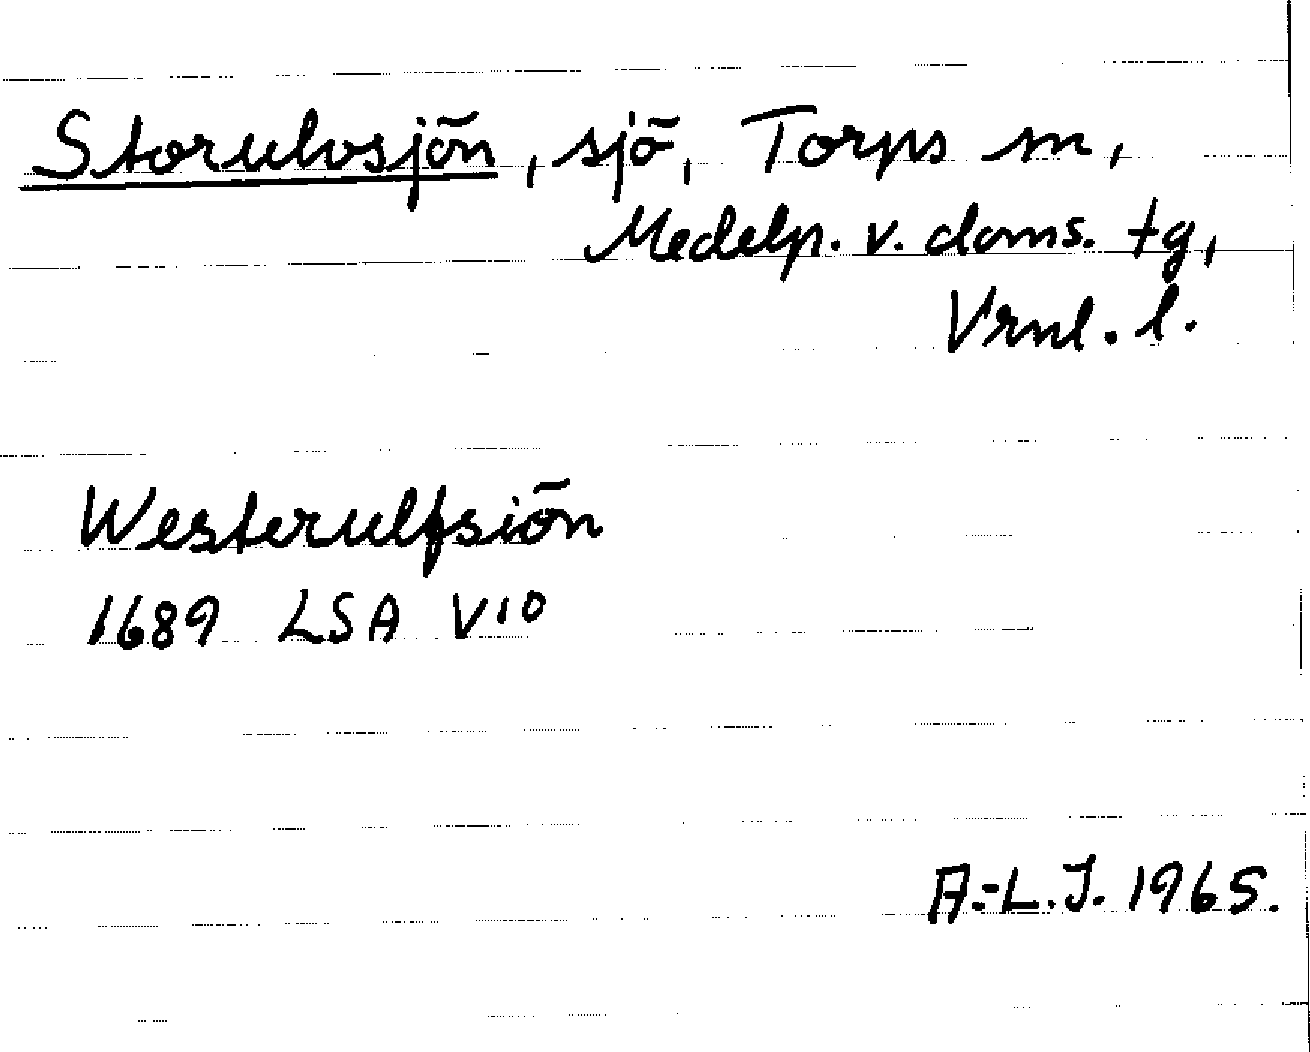 Storulvsjön, sjö, Torps sn,
Medelp. v. doms. tg,
Vrnl. l.
Westerulfsiön
1689 LSA V10
A.-L.J. 1965.